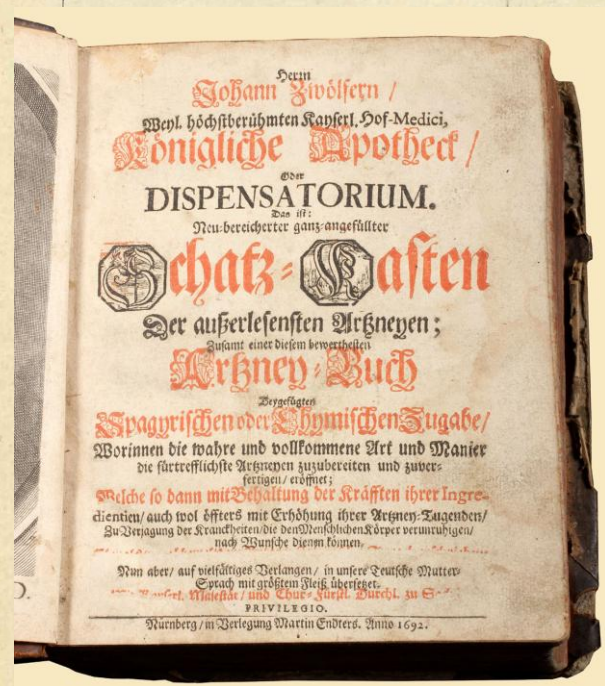 Herrn
Johann Zwölfern /
Weyl. höchstberühmten Kayserl. Hof-Medici,
Königliche Apotheck /
Oder
DISPENSATORIUM.
Das ist:
Neu-bereicherter ganz-angefüllter
Schatz-Kasten
Der außerlesensten Artzneyen;
Zusamt einer diesem bewerthesten
Artzney-Buch
Beygefügten
Spagyrischen oder Chymischen Zugabe /
Worinnen die wahre und vollkommene Art und Manier
die fürtrefflichste Artzneyen zuzubereiten und zuver-
fertigen / eröffnet;
Welche so dann mit Behaltung der Kräfften ihrer Ingre-
dientien / auch wol öffters mit Erhöhung ihrer Artzney-Tugenden /
Zu Verjagung der Kranckheiten / die den Menschlichen Körper verunruhigen /
nach Wunsche dienen können.
Nun aber / auf vielfältiges Verlangen / in unsere Teutsche Mutter-
Sprach mit größtem Fleiß übersetzet.
Kayserl. Majestät / und Chur-Fürstl. Durchl. zu
PRIVILEGIO.
Nürnberg / in Verlegung Martin Endters. Anno 1692.
D.